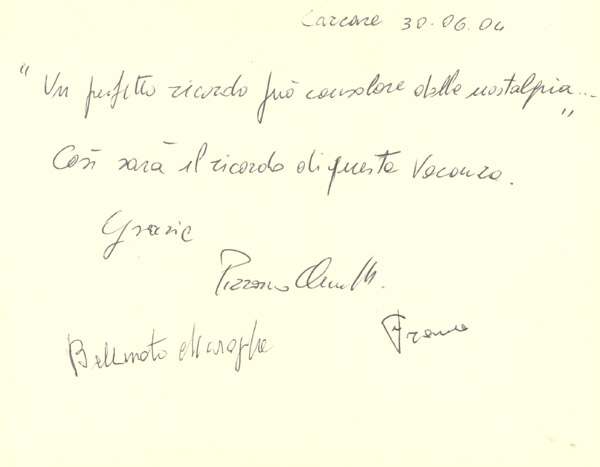 Carcare 30.06.04
"Un perfetto ricordo può consolare dalla nostalgia..."
Così sarà il ricordo di questa vacanza.
Grazie
Pizzorno
Franco
Bellinato